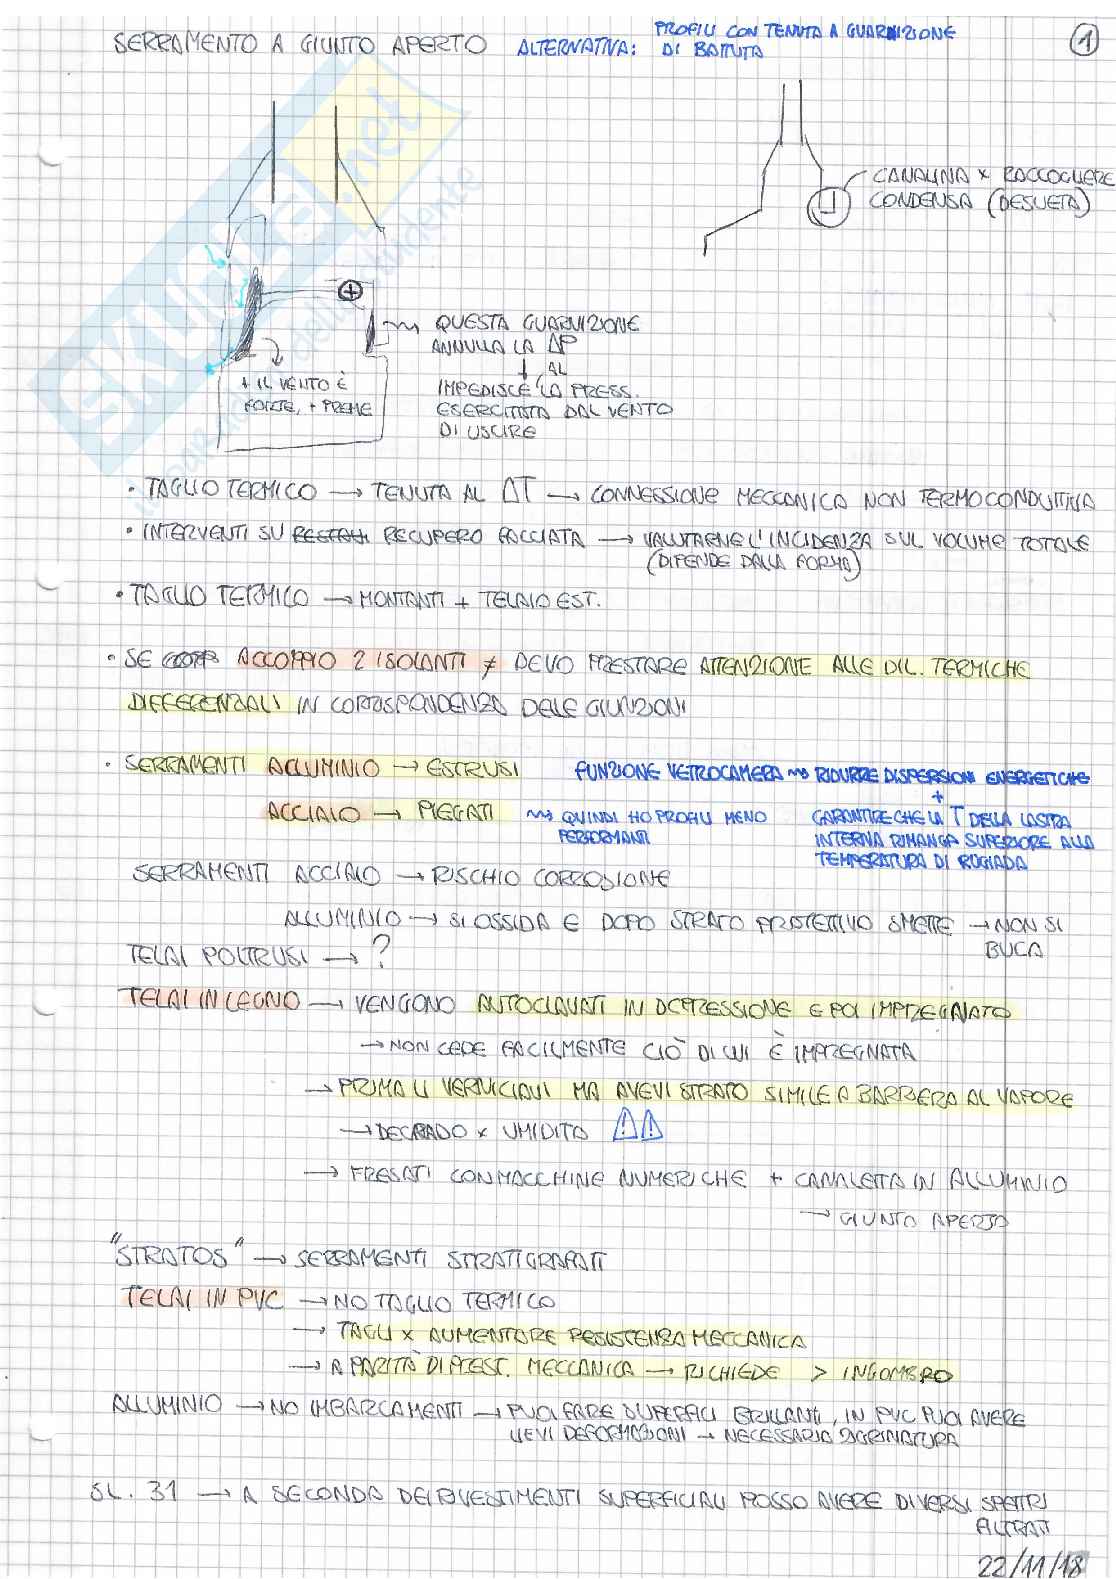 SERRAMENTO A GIUNTO APERTO ALTERNATIVA: PROFILI CON TENUTA A GUARNIZIONE
DI BATTUTA
1
CANALINA x RACCOGLIERE
CONDENSA (DESUETA)
+
QUESTA GUARNIZIONE
ANNULLA LA ΔP
↓ AL
IMPEDISCE LA PRESS.
ESERCITATA DAL VENTO
DI USCIRE
+ IL VENTO È
FORTE, + PREME
SKUOLA.net
• TAGLIO TERMICO → TENUTA AL ΔT → CONNESSIONE MECCANICA NON TERMOCONDUTTIVA
• INTERVENTI SU RECUPERO FACCIATA → VALUTARNE L'INCIDENZA SUL VOLUME TOTALE
(DIPENDE DALLA FORMA)
• TAGLIO TERMICO → MONTANTI + TELAIO EST.
• SE ACCOPPIO 2 ISOLANTI ≠ DEVO PRESTARE ATTENZIONE ALLE DIL. TERMICHE
DIFFERENZIALI IN CORRISPONDENZA DELLE GIUNZIONI
• SERRAMENTI ALLUMINIO → ESTRUSI
ACCIAIO → PIEGATI ⟿ QUINDI HO PROFILI MENO
PERFORMANTI
FUNZIONE VETROCAMERA ⟿ RIDURRE DISPERSIONI ENERGETICHE
+
GARANTIRE CHE LA T DELLA LASTRA
INTERNA RIMANGA SUPERIORE ALLA
TEMPERATURA DI RUGIADA
SERRAMENTI ACCIAIO → RISCHIO CORROSIONE
ALLUMINIO → SI OSSIDA E DOPO STRATO PROTETTIVO SMETTE → NON SI
BUCA
TELAI POLTRUSI → ?
TELAI IN LEGNO → VENGONO AUTOCLAVATI IN DEPRESSIONE E POI IMPREGNATO
→ NON CEDE FACILMENTE CIÒ DI CUI È IMPREGNATA
→ PRIMA LI VERNICIAVI MA AVEVI STRATO SIMILE A BARRIERA AL VAPORE
→ DEGRADO x UMIDITÀ ⚠⚠
→ FRESATI CON MACCHINE NUMERICHE + CANALETTA IN ALLUMINIO
→ GIUNTO APERTO
"STRATOS" → SERRAMENTI STRATIGRAFATI
TELAI IN PVC → NO TAGLIO TERMICO
→ TAGLI x AUMENTARE RESISTENZA MECCANICA
→ A PARITÀ DI PREST. MECCANICA → RICHIEDE > INGOMBRO
ALLUMINIO → NO IMBARCAMENTI → PUOI FARE SUPERFICI BRILLANTI, IN PVC PUOI AVERE
LIEVI DEFORMAZIONI → NECESSARIA SATINATURA
SL. 31 → A SECONDA DEI RIVESTIMENTI SUPERFICIALI POSSO AVERE DIVERSI SPETTRI
FILTRATI
22/11/18